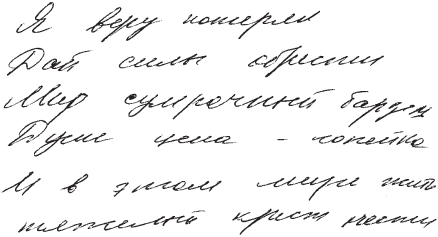 Я веру потерял
Дай силы обрести
Мир сумрачный бардель
Душе цена - копейка
И в этом мире жить
тяжелый крест нести